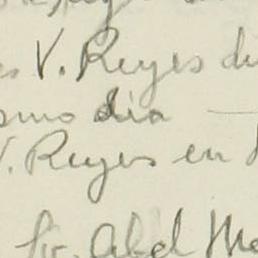 V. Reyes di
smo dia —
V. Reyes en
Sr. Abel Me